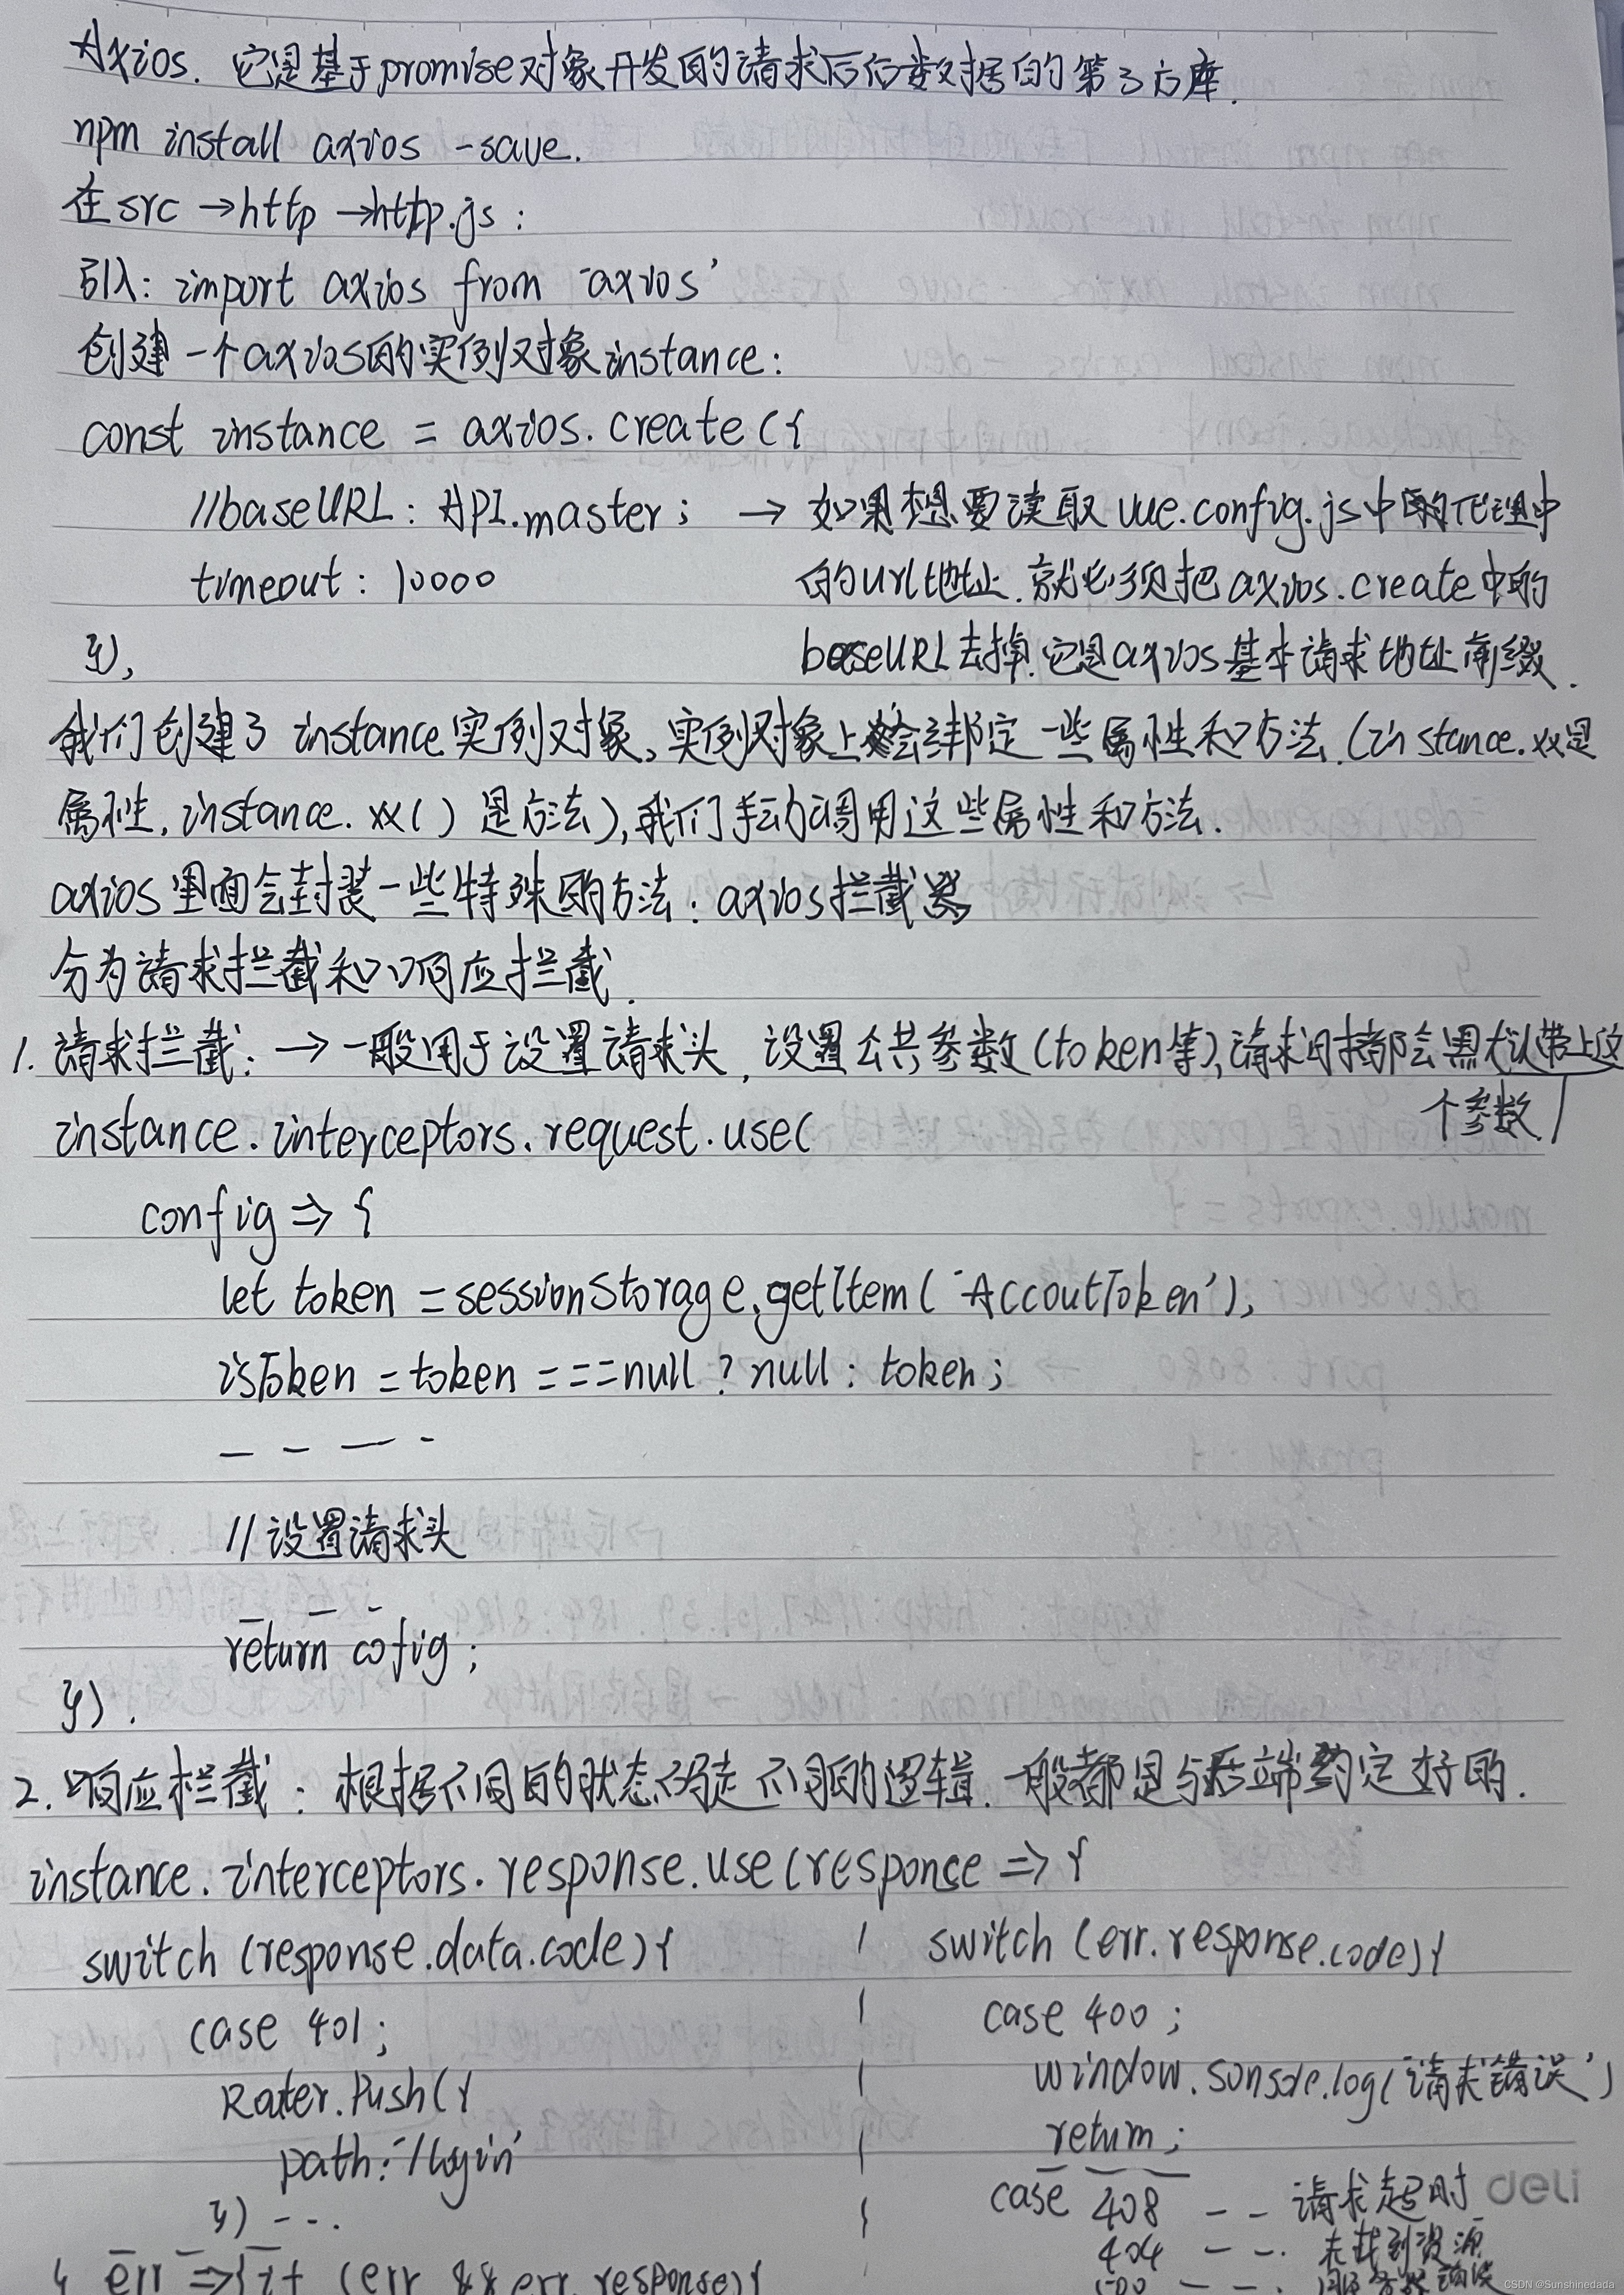 Axios. 它是基于promise对象开发的请求后台数据的第3方库.
npm install axios -save.
在src →http →http.js :
引入: import axios from 'axios'
创建一个axios的实例对象instance:
const instance = axios. create ({
//baseURL : API.master ; → 如果想要读取 vue.config.js中的代理中
timeout : 10000 的url地址.就必须把axios.create中的
}), baseURL去掉.它是axios基本请求地址前缀.
我们创建了 instance实例对象,实例对象上会绑定一些属性和方法.(instance.xx是
属性, instance. xx( ) 是方法),我们手动调用这些属性和方法.
axios里面会封装一些特殊的方法: axios拦截器
分为请求拦截和响应拦截.
1. 请求拦截: → 一般用于设置请求头, 设置公共参数(token等),请求时都会默认带上这
个参数.
instance. interceptors. request. use(
config => {
let token = sessionStorage.getItem( 'AccoutToken'),
isToken = token = = =null ? null : token ;
— — — -
// 设置请求头
— — -
return cofig ;
}) .
2. 响应栏截 : 根据不同的状态码走不同的逻辑. 一般都是与后端约定好的.
instance. interceptors. response. use (responce => {
switch (response.data.code) { switch (err. response.code){
case 401 ; case 400 ;
Router.Push({ window.sonsole.log('请求错误')
path: '/login' return ;
}) - - . case 408 - - 请求超时 deli
404 - - . 未找到资源
err =>{ if (err && err. response){ 500 - - .
CSDN @Sunshinedada